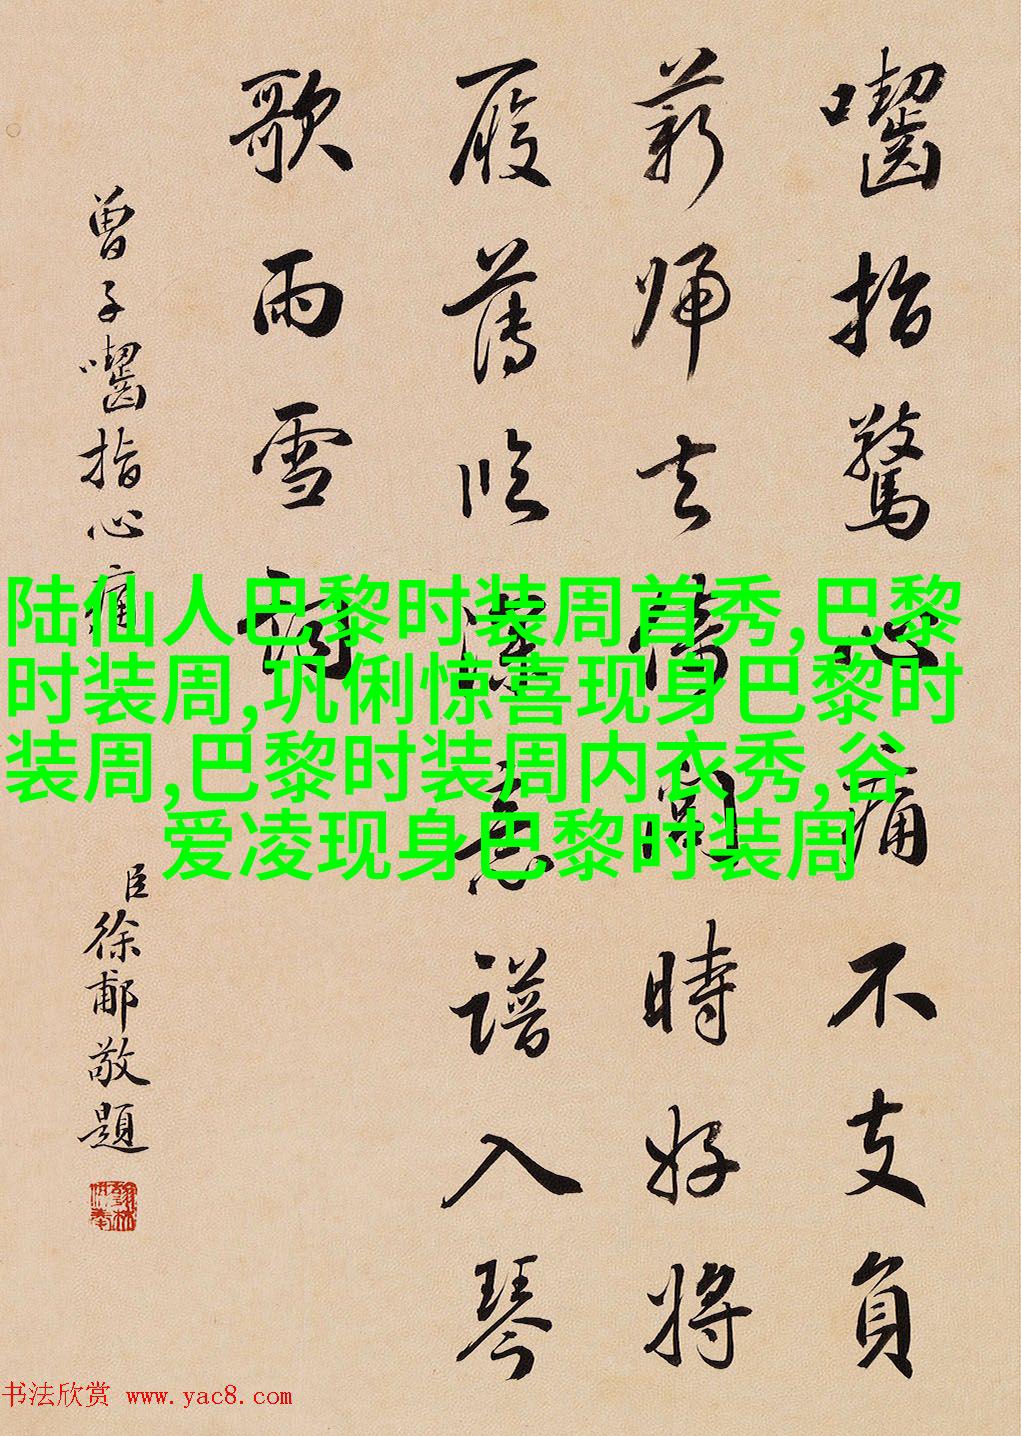 囓指驚心痛不支負
薪歸去侍闈時好將
履薄臨深意譜入琴
歌雨雪詞
曾子囓指心痛
臣徐郙敬題
陆仙人巴黎时装周首秀,巴黎
时装周,巩俐惊喜现身巴黎时
装周,巴黎时装周内衣秀,谷
爱凌现身巴黎时装周
书法欣赏 www.yac8.com